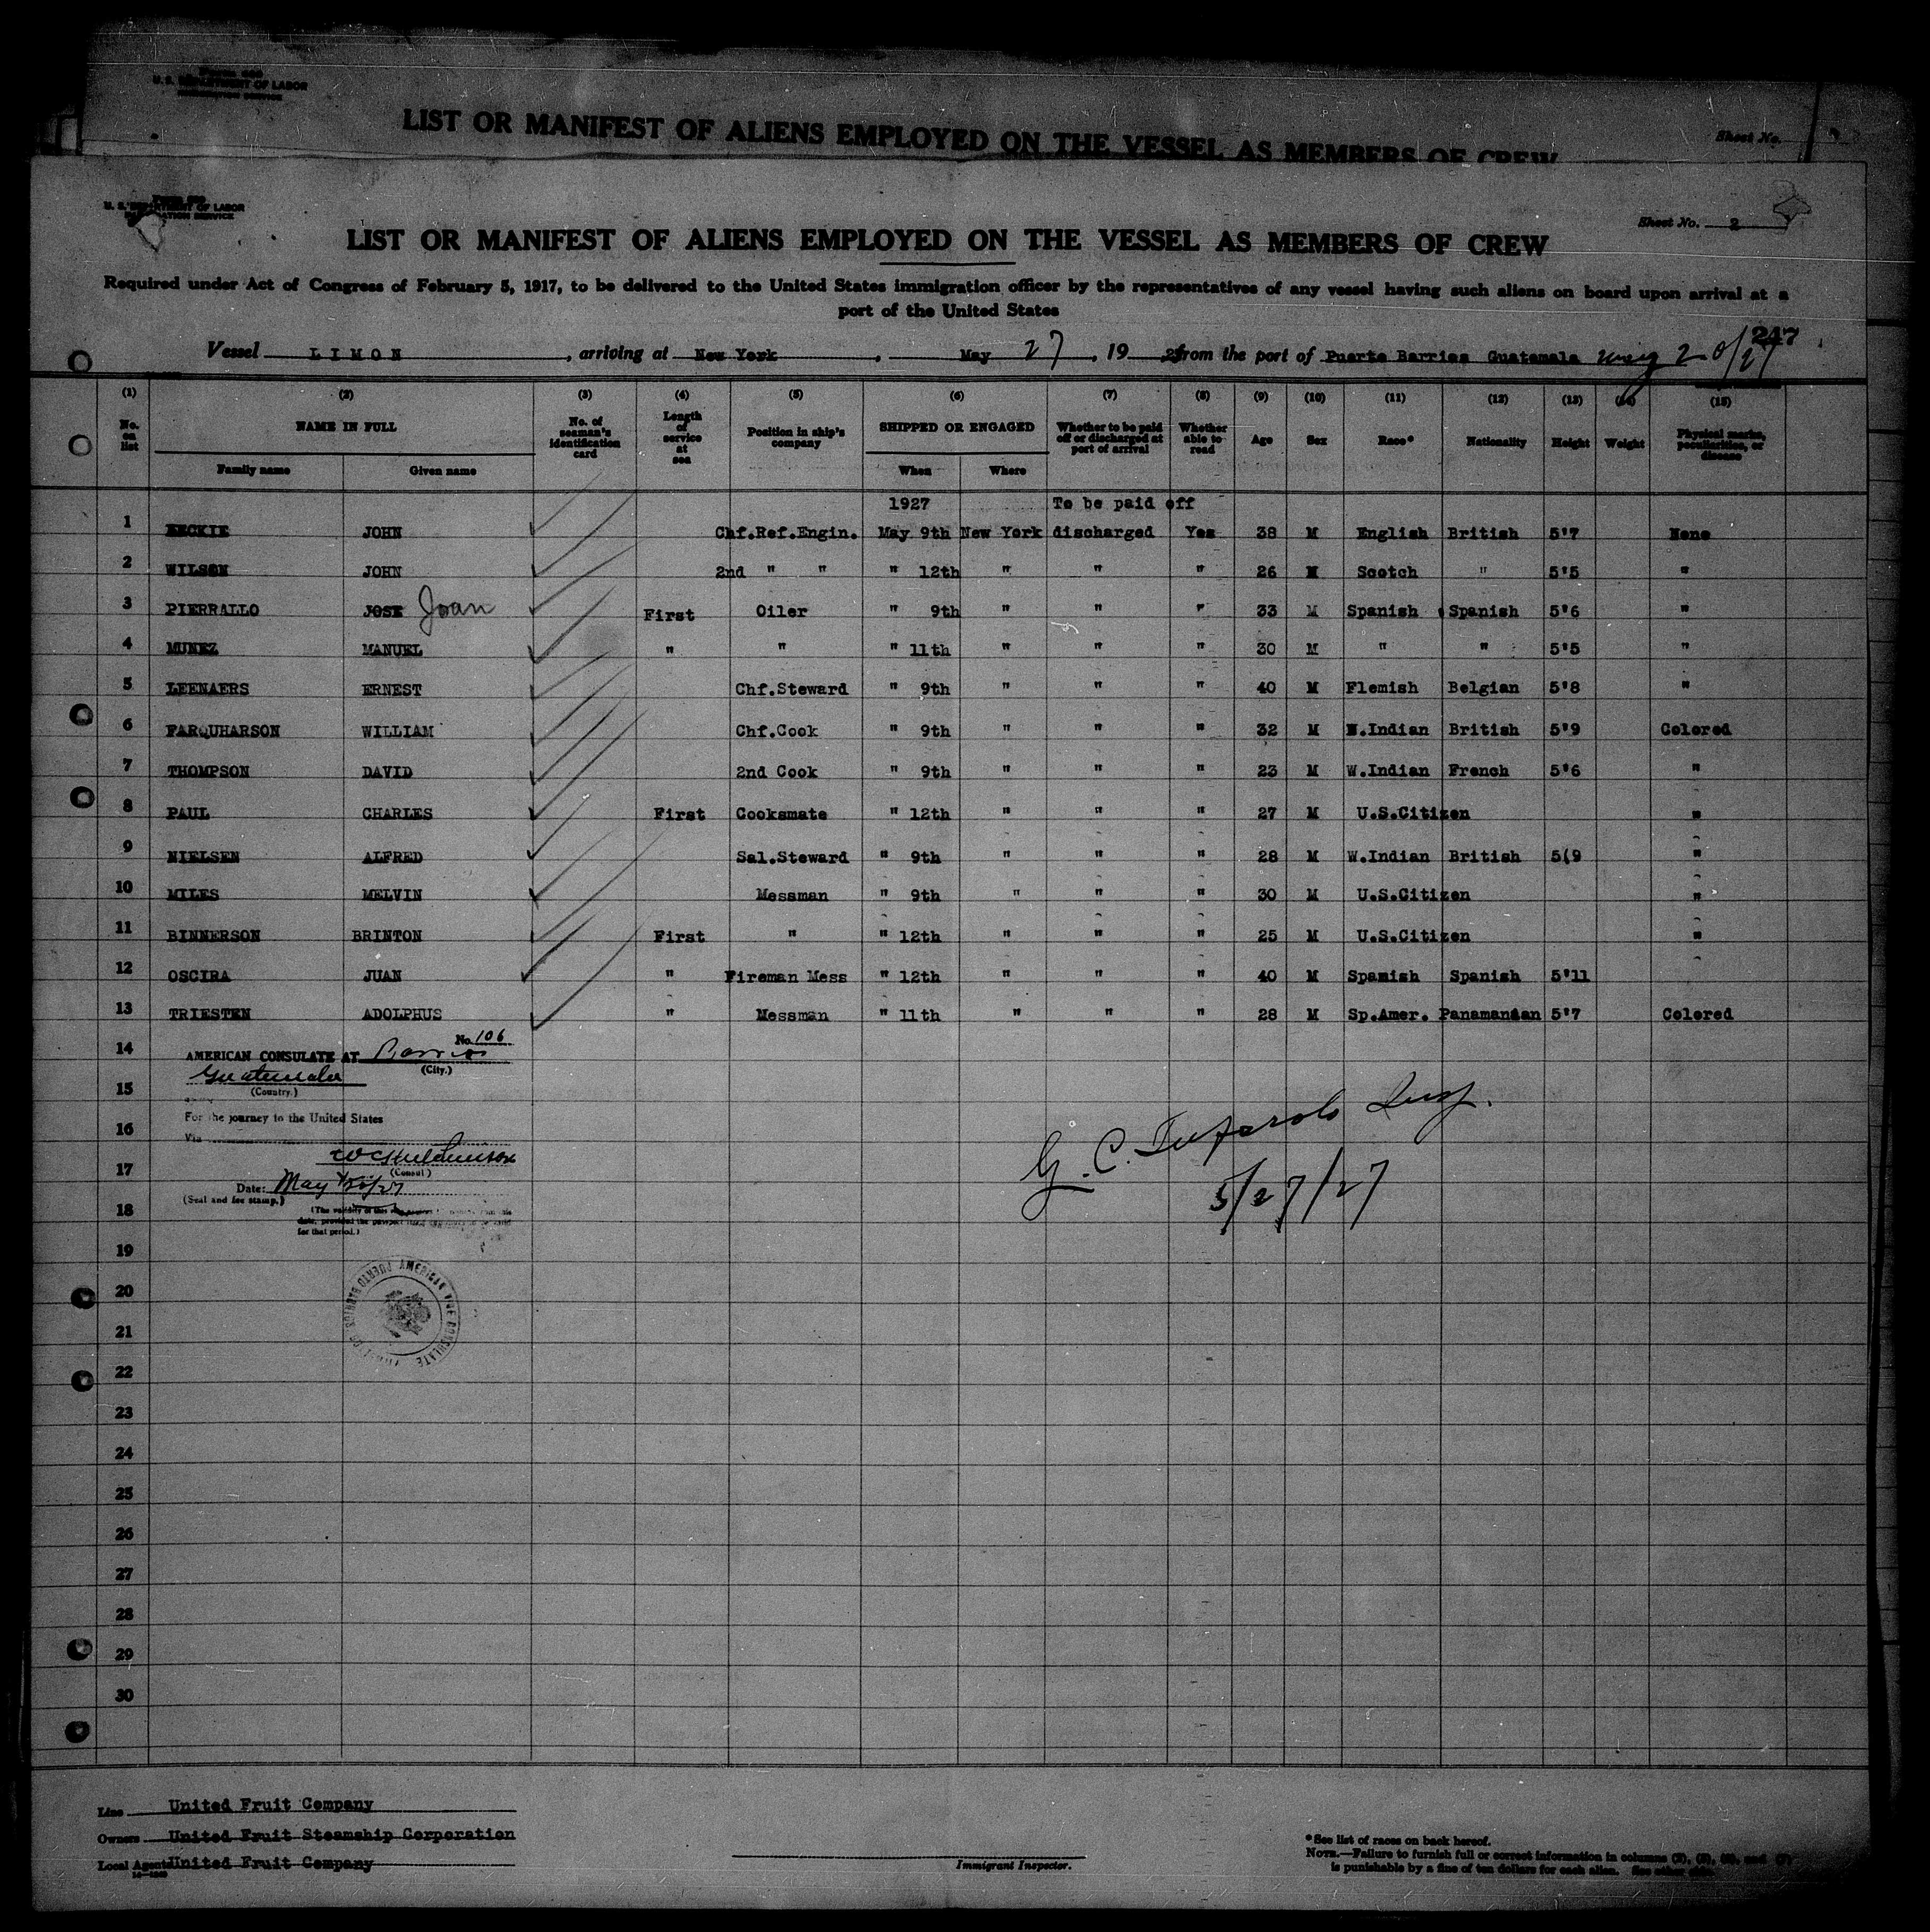 U. S. DEPARTMENT OF LABOR
IMMIGRATION SERVICE
LIST OR MANIFEST OF ALIENS EMPLOYED ON THE VESSEL AS MEMBERS OF CREW
Sheet No.
U. S. DEPARTMENT OF LABOR
IMMIGRATION SERVICE
Sheet No. 2
LIST OR MANIFEST OF ALIENS EMPLOYED ON THE VESSEL AS MEMBERS OF CREW
Required under Act of Congress of February 5, 1917, to be delivered to the United States immigration officer by the representatives of any vessel having such aliens on board upon arrival at a
port of the United States
247
Vessel LIMON, arriving at New York, May 27, 19 from the port of Puerto Barrios Guatemala May 20/27
(1) (2) (3) (4) (5) (6) (7) (8) (9) (10) (11) (12) (13) (14) (15)
No. on list NAME IN FULL No. of seaman's identification card Length of service at sea Position in ship's company SHIPPED OR ENGAGED Whether to be paid off or discharged at port of arrival Whether able to read Age Sex Race* Nationality Height Weight Physical marks, peculiarities, or disease
Family name Given name When Where
1927 To be paid off
1 JOHN Chf.Ref.Engin. May 9th New York discharged Yes 38 M English British 5'7 None
2 WILSON JOHN 2nd " " " 12th " " " 26 M Scotch " 5'5 "
3 PIERRALLO JOSE Joan First Oiler " 9th " " " 33 M Spanish Spanish 5'6 "
4 MUNEZ MANUEL " " " 11th " " " 30 M " " 5'5 "
5 LEENAERS ERNEST Chf.Steward " 9th " " " 40 M Flemish Belgian 5'8 "
6 FARQUHARSON WILLIAM Chf.Cook " 9th " " " 32 M W.Indian British 5'9 Colored
7 THOMPSON DAVID 2nd Cook " 9th " " " 23 M W.Indian French 5'6 "
8 PAUL CHARLES First Cooksmate " 12th " " " 27 M U.S.Citizen "
9 NIELSEN ALFRED Sal.Steward " 9th " " " 28 M W.Indian British 5(9 "
10 MILES MELVIN Messman " 9th " " " 30 M U.S.Citizen "
11 BINNERSON BRINTON First " " 12th " " " 25 M U.S.Citizen "
12 OSCIRA JUAN " Fireman Mess " 12th " " " 40 M Spanish Spanish 5'11
13 TRIESTEN ADOLPHUS " Messman " 11th " " " 28 M Sp.Amer. Panamanian 5'7 Colored
No. 106
14 AMERICAN CONSULATE AT Barrios
(City.)
Guatemala
15 (Country.)
For the journey to the United States
16 Via
W C Hutchinson
17 (Consul)
Date: May
(Seal and fee stamp.)
18 (The validity of this
date, provided the passport
for that period.)
G. C. Insp.
5/27/27
19
AMERICAN VICE CONSULATE PUERTO BARRIOS
20
21
22
23
24
25
26
27
28
29
30
Line United Fruit Company
Owners United Fruit Steamship Corporation
Local Agents United Fruit Company
Immigrant Inspector.
*See list of races on back hereof.
NOTE.—Failure to furnish full or correct information in columns
is punishable by a fine of ten dollars for each alien. See other side.